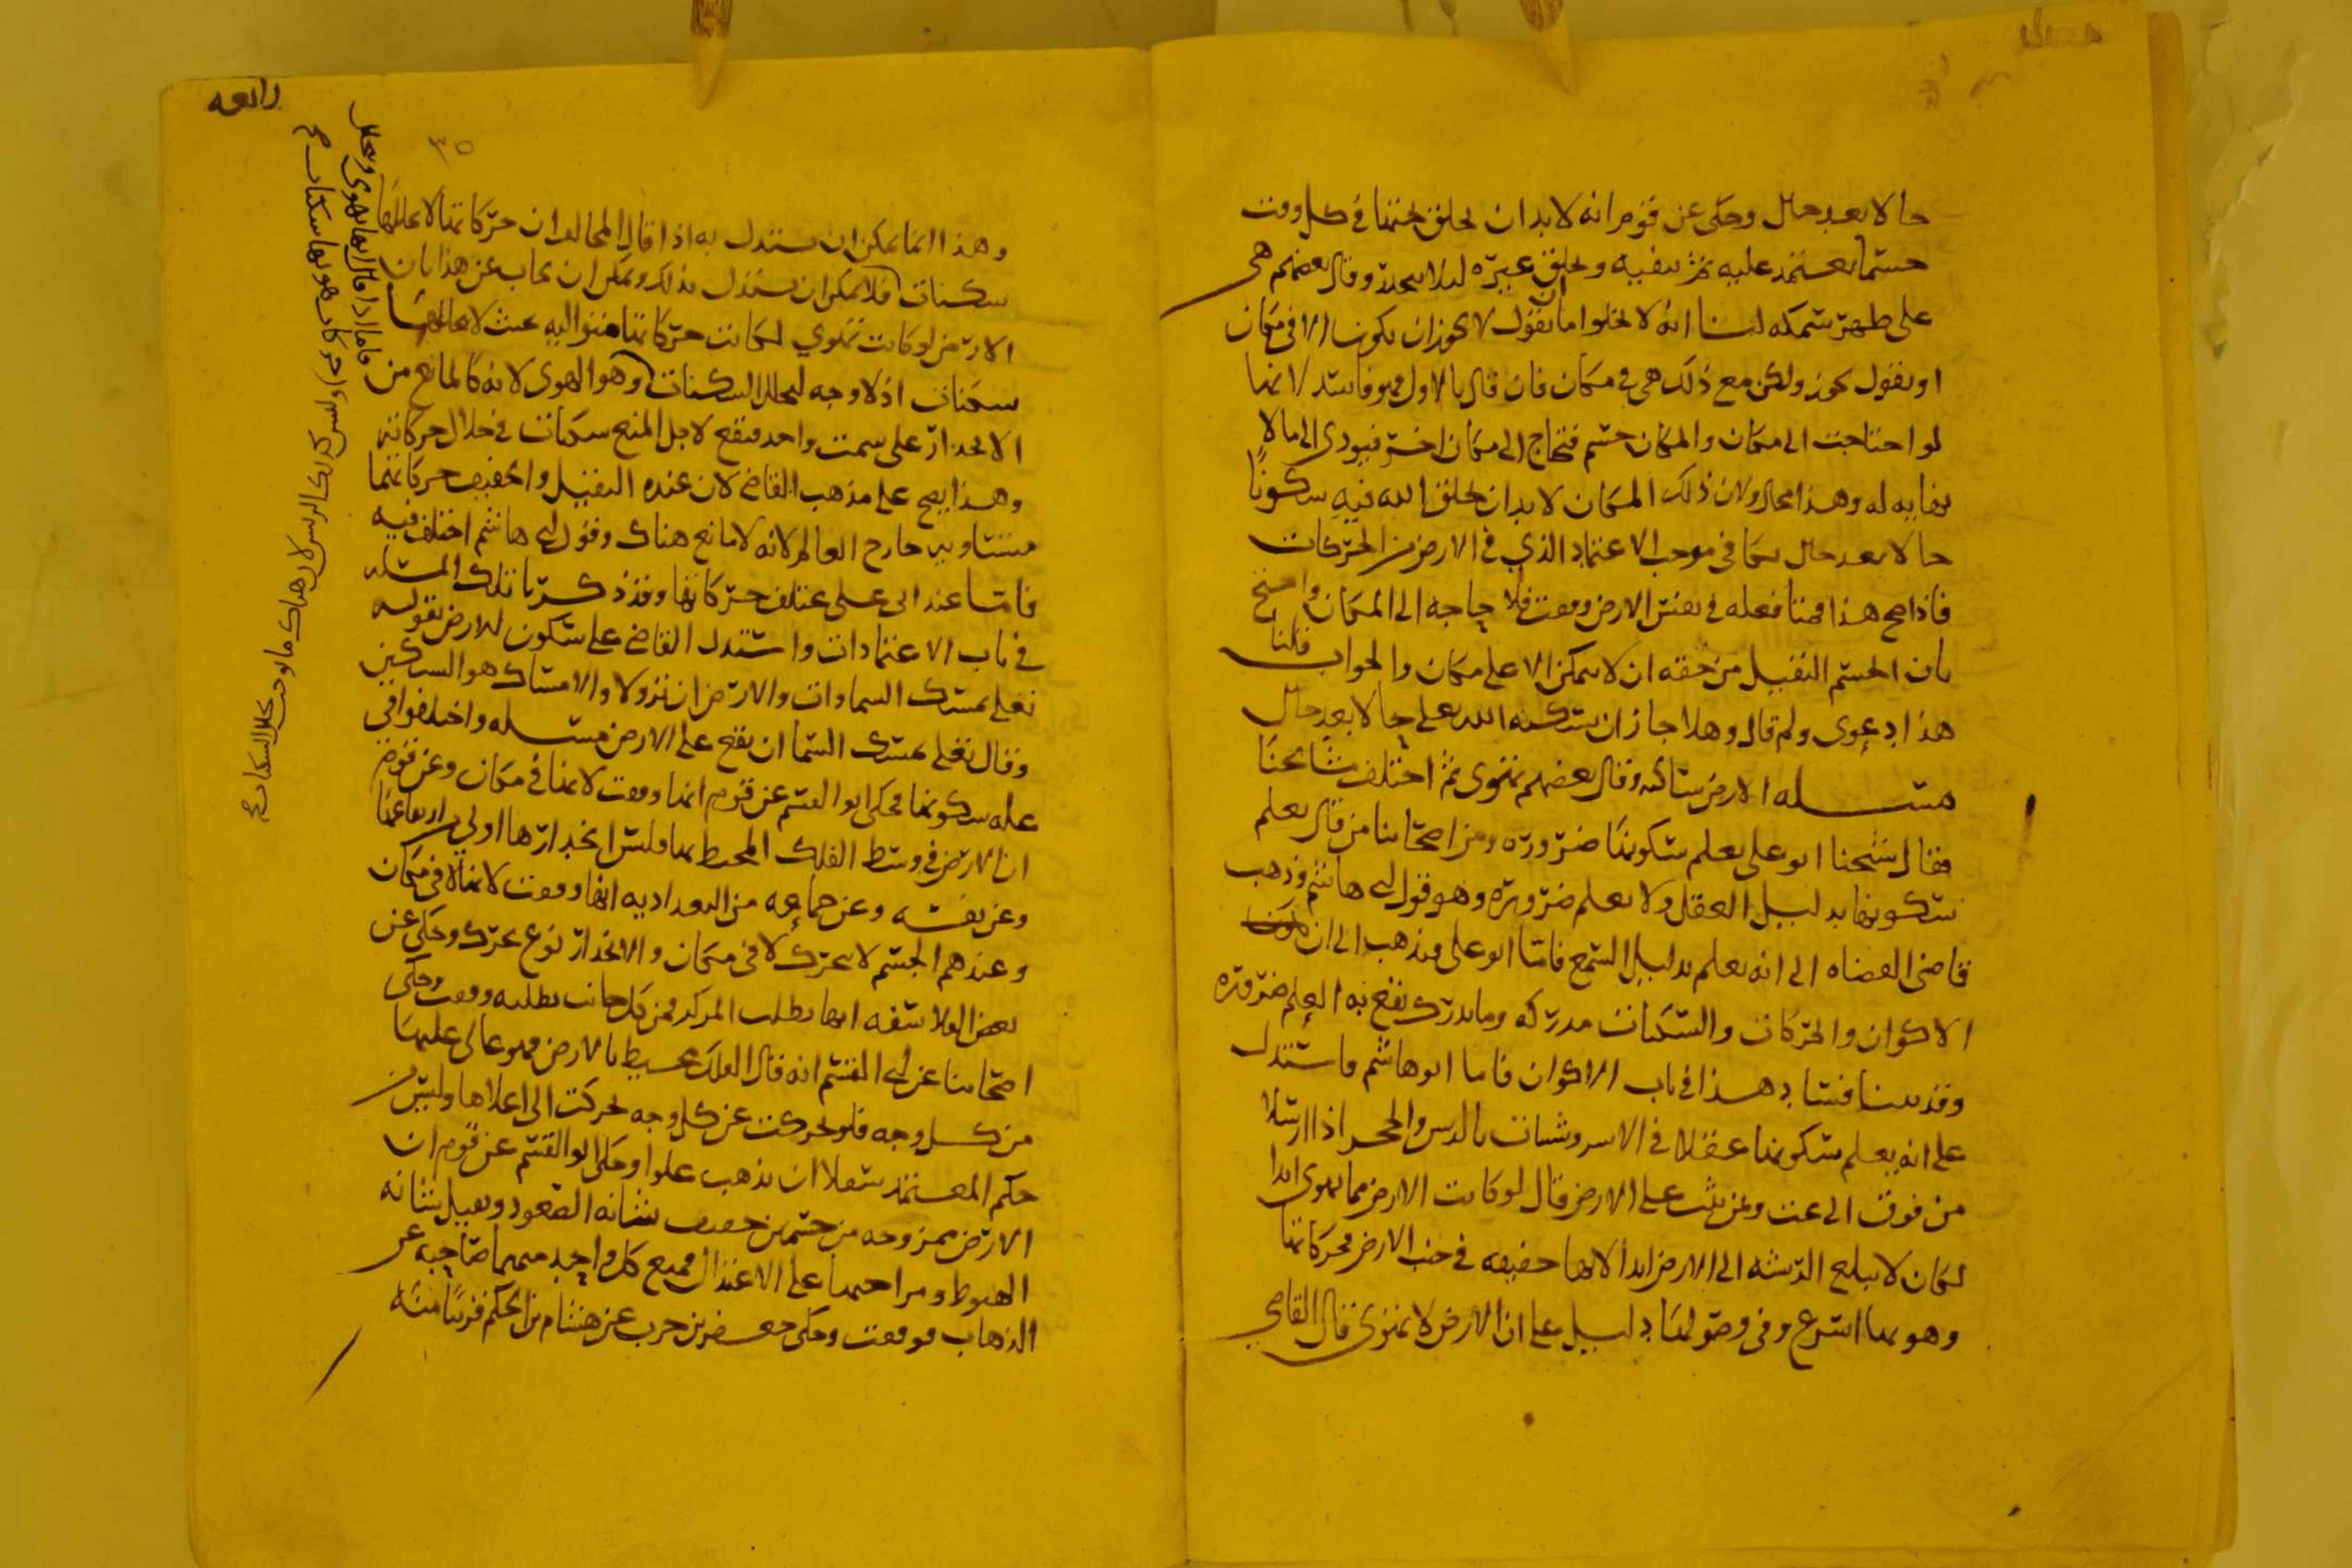 حالا بعد حال وحكى عن قوم انه لا بد ان يخلق تحتها في كل وقت
جسما يعتمد عليه ثم ينفيه ويخلق غيره لئلا ينحدر وقال بعضهم هي
على ظهر سمكه لنا انه لا يخلوا اما ان يقول لا يجوز ان يكون الا في مكان
او يقول يجوز ولكن مع ذلك هي في مكان فان قال بالاول فهو فاسد لانها
لو احتاجت الى مكان والمكان جسم فيحتاج الى مكان اخر فيودي الى ما لا
نهايه له وهذا محال ولان ذلك المكان لا بد ان يخلق الله فيه سكونا
حالا بعد حال ينافي موجب الاعتماد الذي في الارض من الحركات
فاذا صح هذا فهنا فعله في نفس الارض وقعت فلا حاجه الى المكان واحتج
بان الجسم الثقيل من حقه ان لا يسكن الا على مكان والجواب قلنا
هذا دعوى ولم قال وهلا جاز ان يسكنه الله تعلى حالا بعد حال
مسله الارض ساكنه وقال بعضهم تهوى ثم اختلف مشائخنا
فقال شيخنا ابو علي يعلم سكونها ضروره ومن اصحابنا من قال يعلم
سكونها بدليل العقل ولا يعلم ضروره وهو قول ابي هاشم وذهب
قاضي القضاه الى انه يعلم بدليل السمع فاما ابو علي فذهب الى ان
الاكوان والحركات والسكنات مدركه وما يدرك يقع به العلم ضروره
وقد بينا فساد هذا في باب الاكوان فاما ابو هاشم فاستدل
على انه يعلم سكونها عقلا في الاسروشنات بالريش والحجر اذا ارسلا
من فوق الى تحت ولم يثبت على الارض قال لو كانت الارض مما يهوى ابدا
لكان لا يبلغ الريشه الى الارض ابدا لانها خفيفه في جنب الارض فحركاتها
وهويها اسرع وفي وصولها دليل على ان الارض لا تهوى قال القاضي
رابعه
٣٥
وهذا انما يمكن ان يستدل به اذا قال المخالف ان حركاتها لا يتخللها
سكنات فلا يمكن ان يستدل بذلك ويمكن ان يجاب عن هذا بان
الارض لو كانت تهوي لكانت حركاتها متواليه بحيث لا يتخللها
سكنات اذ لا وجه لتخلل السكنات وهو الهوى لانه كالمانع من
الانحدار على سمت واحد فيقع لاجل المنع سكنات في خلال حركاته
وهذا يصح على مذهب القاضي لان عنده الثقيل والخفيف حركاتهما
متساويه خارج العالم لانه لا مانع هناك وقول ابي هاشم اختلف فيه
فاما عند ابي علي يختلف حركاتها وقد ذكرنا تلك المسله
في باب الاعتمادات واستدل القاضي على سكون الارض بقوله
تعلى يمسك السماوات والارض ان تزولا والامساك هو التسكين
وقال تعلى يمسك السما ان تقع على الارض مسله واختلفوا في
عله سكونها فحكى ابو القسم عن قوم انها وقفت لانها في مكان وعن قوم
ان الارض في وسط الفلك المحيط بها وليس انحدارها اولى من ارتفاعها
وعن نفسه وعن جماعه من البغداديه انها وقفت لانها لا في مكان
وعندهم الجسم لا يتحرك لا في مكان والانحدار نوع تحرك وحكى عن
بعض الفلاسفه انها تطلب المركز فمن كل جانب تطلبه وقفت وحكى
اصحابنا عن ابي القسم انه قال الفلك محيط بالارض فهو عالي عليها
من كل وجه فلو تحركت عن كل وجه تحركت الى اعلاها وليس من
حكم المعتمد سفلا ان يذهب علوا وحكى ابو القسم عن قوم ان
الارض ممزوجه من جسمين خفيف شانه الصعود وثقيل شانه
الهبوط ومزاجهما على الاعتدال فمنع كل واحد منهما صاحبه عن
الذهاب فوقفت وحكى جعفر بن حرب عن هشام بن الحكم قريبا منه
فاما اذا قال انها تهوى وتخلل
حركات هويها سكنات صح
وليس كذلك الريش لان هناك ما يوجب تخلل السكنات صح